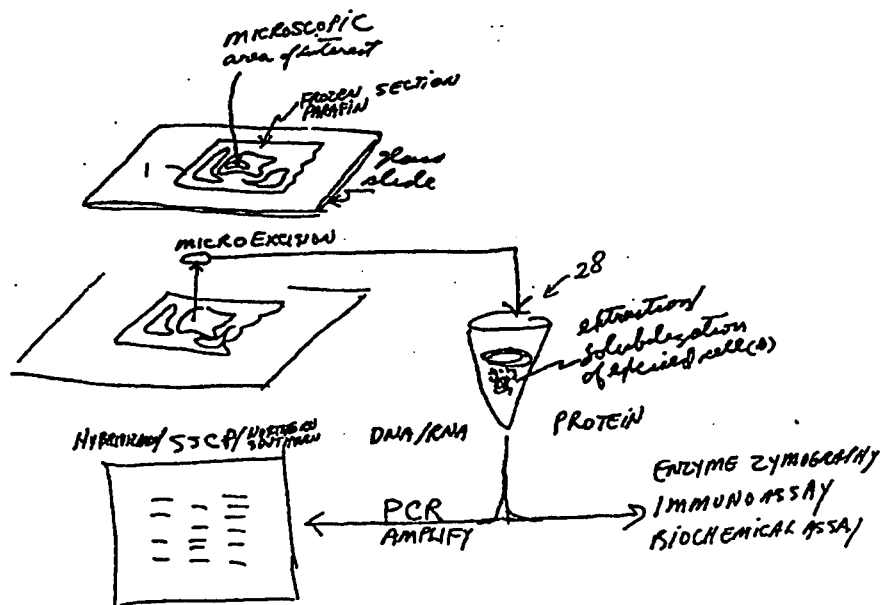 MICROSCOPIC
area of interest
FROZEN SECTION
PARAFIN
1
glass
slide
MICROEXCISION
28
extraction/
solubilization
of excised cell(s)
DNA/RNA
PROTEIN
NORTHERN
SOUTHERN
PCR
AMPLIFY
ENZYME ZYMOGRAPHY
IMMUNOASSAY
BIOCHEMICAL ASSAY